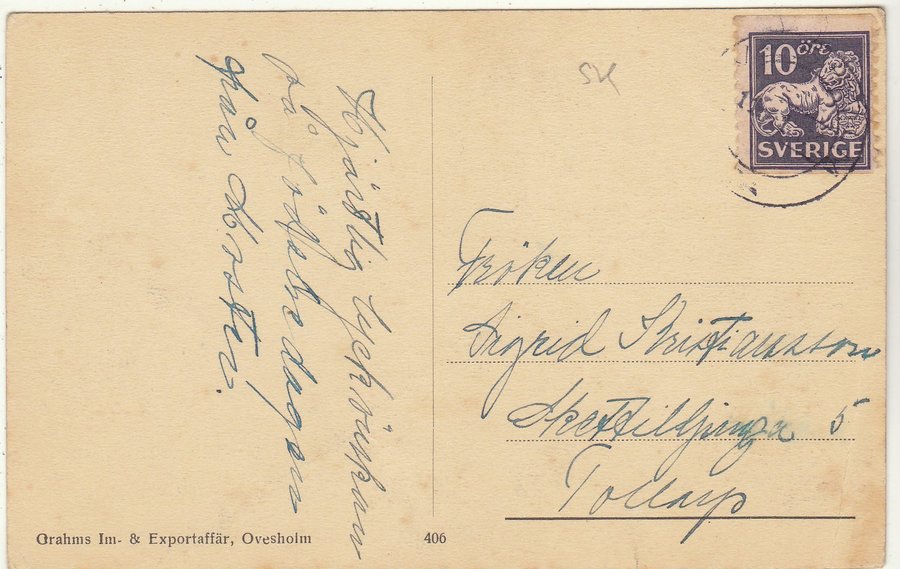 Hjärtlig lyckönskan
på födelsedagen
från Mosten.
SK
10 öre
SVERIGE
Fröken
Sigrid Kristiansson
Skettilljunga 5
Tollarp
Grahms Im- & Exportaffär, Ovesholm
406